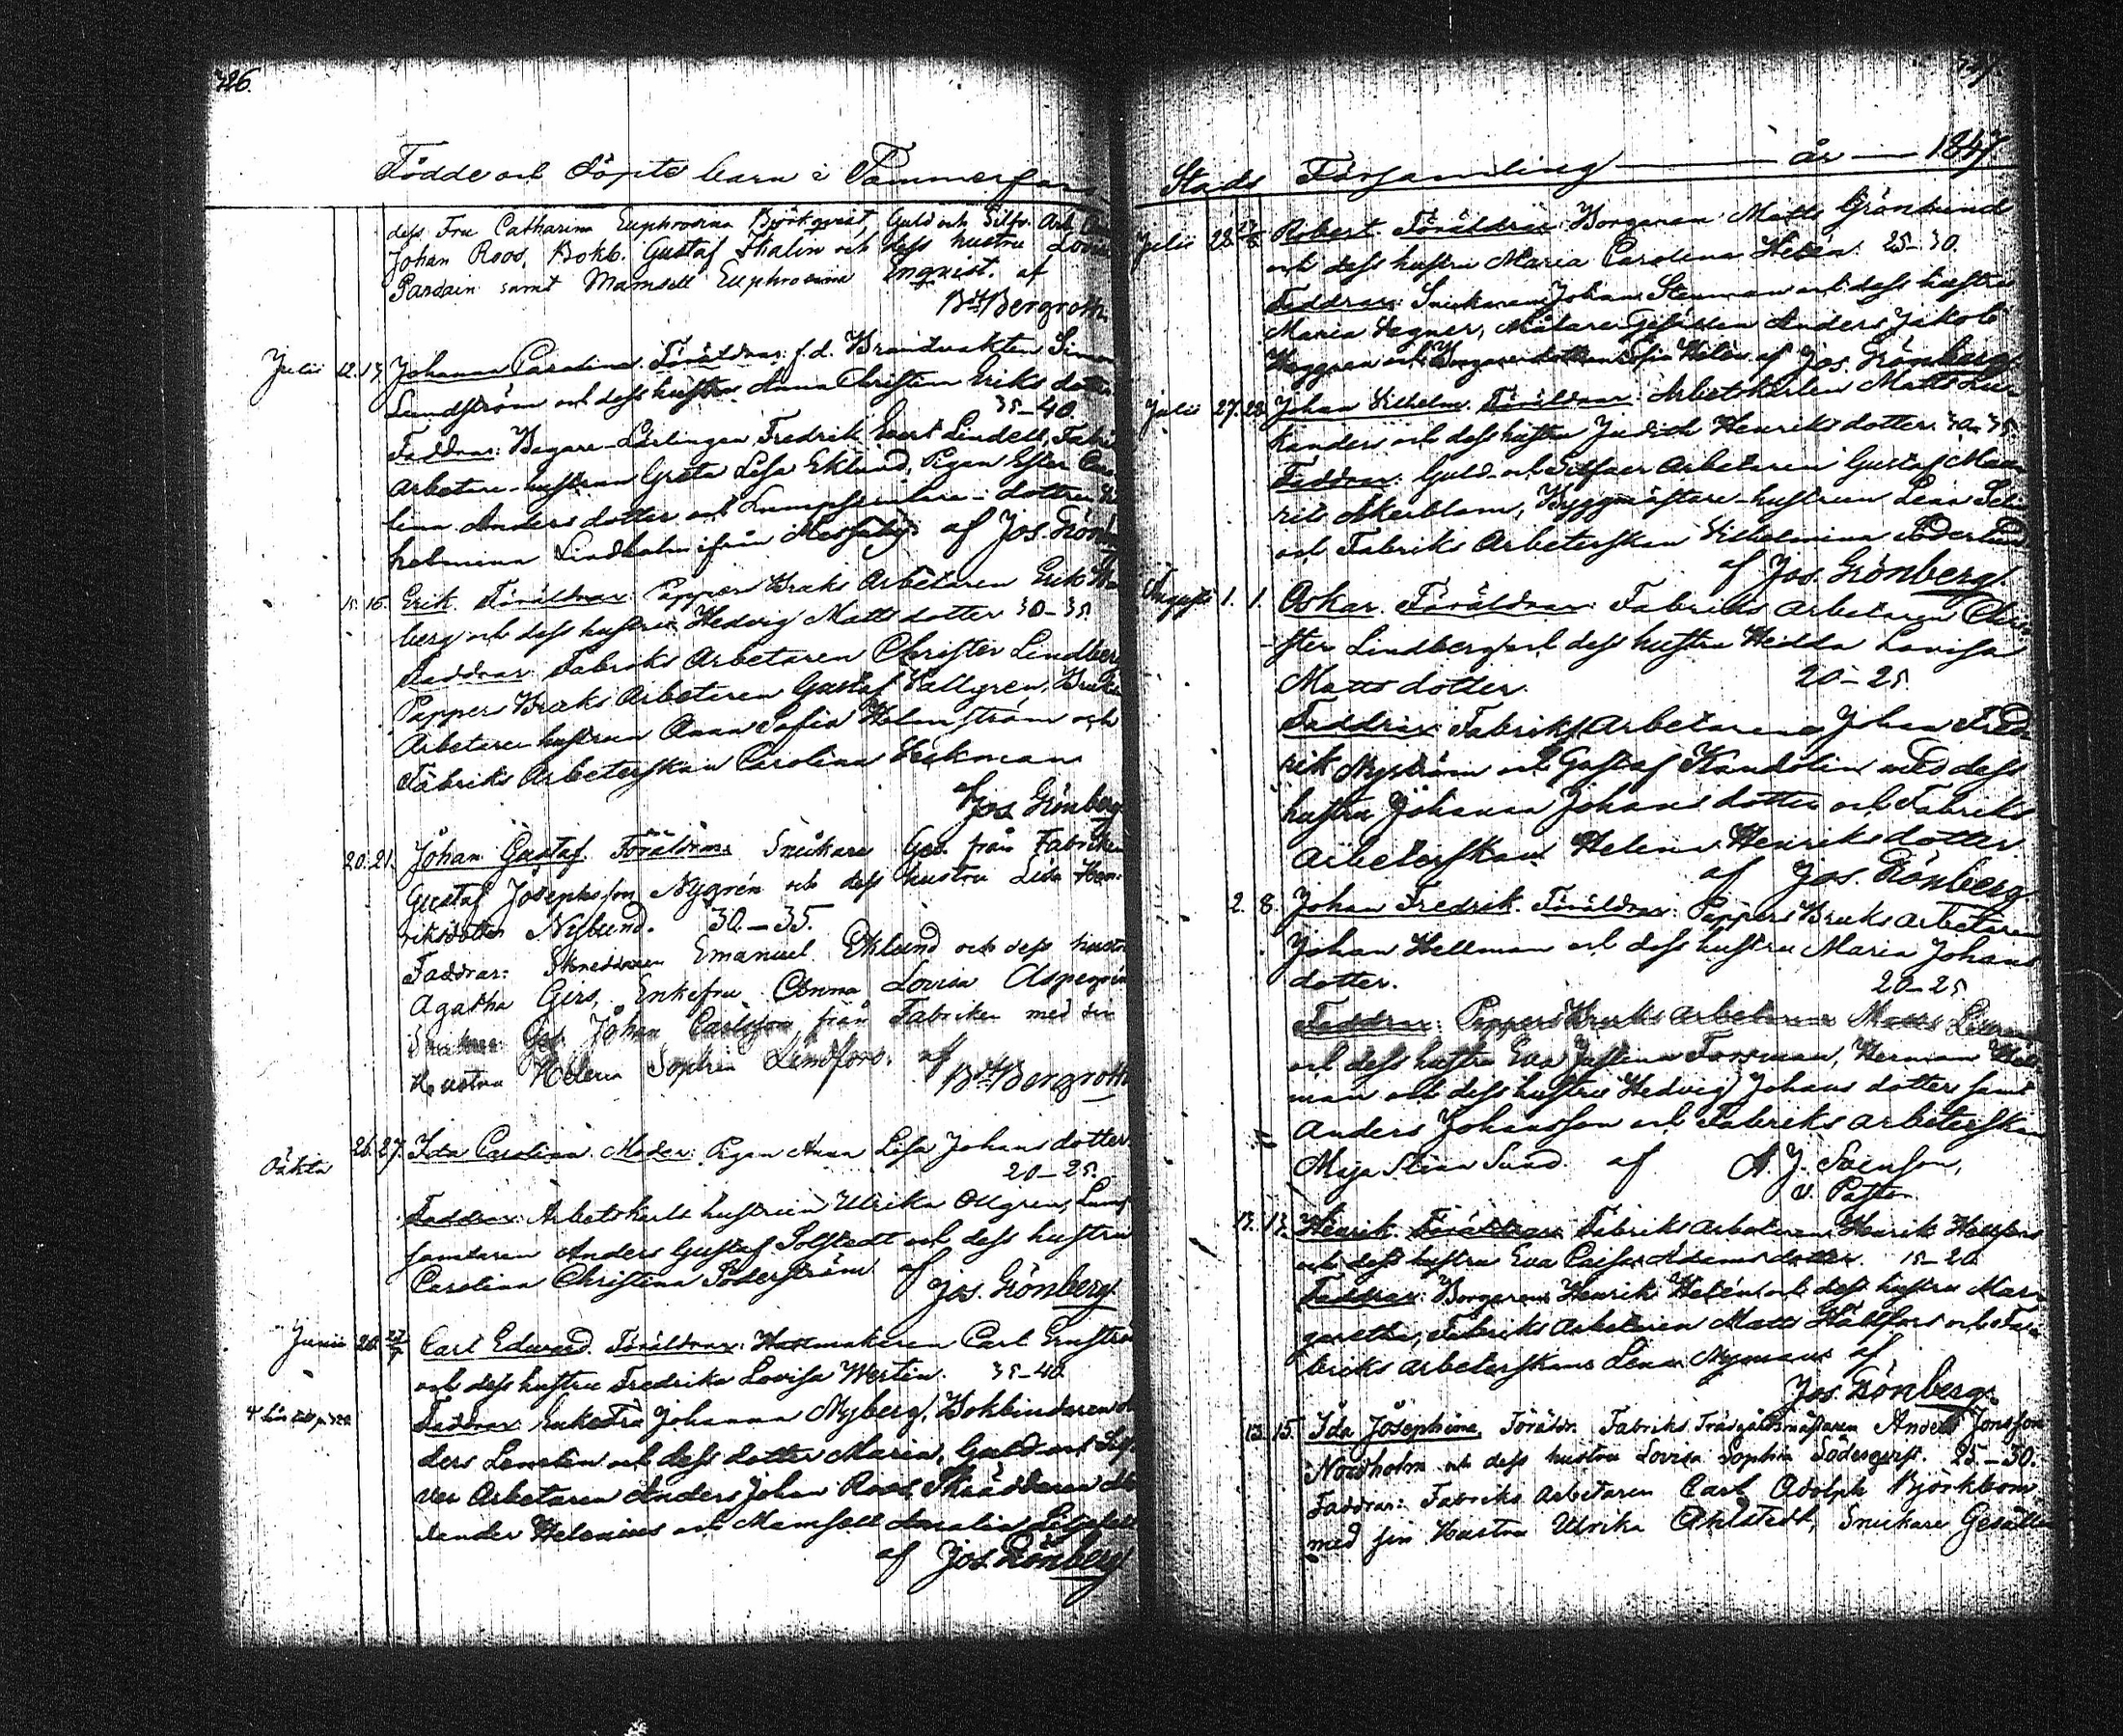 726.
Födde och Döpte barn i Tammerfors
dess Fru Catharina Euphrosina Björkqvist, Guld och Silfv. Arb.
Johan Roos, Bokb. Gustaf Thalin och dess hustru Lovisa
samt Mamsell Euphrosina Enqvist. af
Bergroth.
Julii 12. 17. Johanna Carolina. Föräldrar: f.d. Brandvakten Simon
Lundström och dess hustru Anna Christina Eriks dotter
35–40.
Faddrar: Bagare-Lärlingen Fredrik Evert Lindell, Fabriks
Arbetare-hustrun Greta Lisa Eklund, Pigan Ester
Anders dotter och Lumpsamlare-dottren
helmina Lindholm ifrån Messuby. af Jos. Grönberg
15. 16. Erik. Föräldrar: Pappers Bruks Arbetaren Erik
berg och dess hustru Hedvig Matts dotter 30–35.
Faddrar: Fabriks Arbetaren Christer Lindberg
Pappers Bruks Arbetaren Gustaf Vallgren, Bruks
Arbetare hustrun Anna Sofia Holmström och
Fabriks Arbeterskan Carolina Veckman
af
Jos. Grönberg
20. 21. Johan Gustaf. Föräldrar: Snickare Ges. från Fabriken
Gustaf Josephsson Nygrén och dess hustru Lisa Hen-
riksdotter Nylund. 30.–35.
Faddrar: Emanuel Eklund och dess hustru
Agatha Girs, Enkefru Anna Lovisa Aspegrén
Snickare Ges. Johan Carlsson från Fabriken med sin
Hustru Helena Sophia Lindfors. af
Bergroth
Oäkta 26. 27. Ida Carolina. Moder: Pigan Anna Lisa Johans dotter
20–25.
Faddrar: Arbetskarls hustrun Ulrika Ollgren, Lump
samlaren Anders Gustaf Solstedt och dess hustru
Carolina Christina Söderström af
Jos. Grönberg.
Junii 20. Carl Edvard. Föräldrar: Hattmakaren Carl Enström
och dess hustru Fredrika Lovisa Westin. 35–40.
Faddrar: Enkefru Johanna Nyberg, Bokbinderen
ders Lenelin och dess dotter Maria, Guld och Silf-
ver Arbetaren Anders Johan Roos, Skräddaren
xander Helenius och Mamsell Amalia
af Jos. Grönberg
Stads Församling — år — 1847
Julii 23. Robert. Föräldrar: Borgaren Matts Grönlund
och dess hustru Maria Carolina Helén. 25–30.
Faddrar: Snickaren Johan Stenman och dess hustru
Maria Vagner, Målare Gesällen Anders Jakob
Häggren och Borgare dottren Sofia Helén af Jos. Grönberg.
Julii 27. 28. Johan Vilhelm. Föräldrar: Arbetskarlen Matts Lu-
kander och dess hustru Judith Henriks dotter. 30–35.
Faddrar: Guld- och Silfver Arbetaren Gustaf Mau-
ritz Åkerblom, Byggmästare-hustrun Lena
och Fabriks Arbeterskan Vilhelmina Söderlund
af Jos. Grönberg.
Augusti 1. 1. Oskar. Föräldrar: Fabriks Arbetaren Chri-
ster Lindberg och dess hustru Hedda Lovisa
Matts dotter. 20–25.
Faddrar: Fabriks Arbetarene Johan Fred-
rik Nyström och Gustaf Kandolin med dess
hustru Johanna Johans dotter och Fabriks
Arbeterskan Helena Henriks dotter.
af Jos. Grönberg
2. 8. Johan Fredrik. Föräldrar: Pappers Bruks Arbetaren
Johan Hellman och dess hustru Maria Johans
dotter. 20–25
Faddrar: Pappers Bruks Arbetaren Matts
och dess hustru Eva Justina Forsman, Herman
man och dess hustru Hedvig Johans dotter samt
Anders Johansson och Fabriks Arbeterskan
Maja Stina Sund. af A. J. Svenson,
v. Pastor
13. 13. Henrik. Föräldrar: Fabriks Arbetaren Henrik Hellfors
och dess hustru Eva Caisa Adams dotter. 15–20.
Faddrar: Borgaren Henrik Helén och dess hustru Mar-
garetha, Fabriks Arbetaren Matts Hällfors och Fa-
briks Arbeterskan Lena Nyman af
Jos. Grönberg.
13. 15. Ida Josephina. Föräldr. Fabriks Trädgårdsmästaren Anders Jonsson
Nordholm och dess hustru Lovisa Sophia 25.–30.
Faddrar: Fabriks Arbetaren Carl Adolph Björkbom
med sin Hustru Ulrika Ahlstedt, Snickare Gesällen